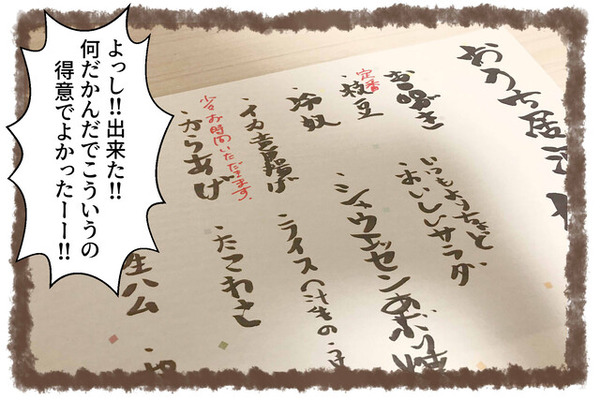 よっし!!出来た!!
何だかんだでこういうの
得意でよかったーー!!
居酒
お品がき
定番
・枝豆
・冷奴
・イカ唐揚げ
少々お時間いただきます。
・からあげ
・いつもよりちょっと
おいしいサラダ
・シャウエッセンあぶり焼
・ライス(汁もの
・たこわさ
生ハム